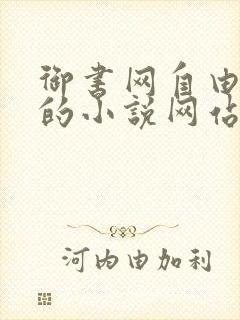 御书网自由
的小说网站
河内由加利